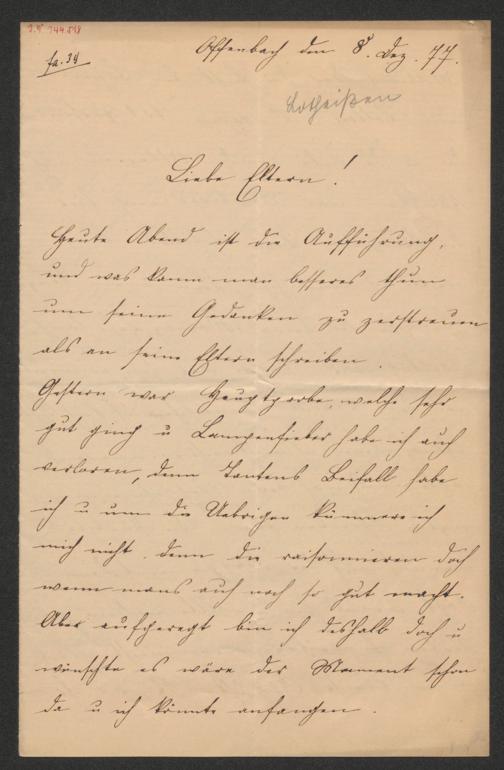 I.N 144.518
fa. 34
Offenbach den 8t. Dez. 77.
Lotheißen
Liebe Eltern!
Heute Abend ist die Aufführung,
und was kann man besseres thun
um seine Gedanken zu zerstreuen
als an seine Eltern schreiben.
Gestern war Hauptprobe, welche sehr
gut ging u Lampenfieber habe ich auch
verloren, denn Tantens Beifall habe
ich u um die Uebrigen kümmere ich
mich nicht. denn die raisonnieren doch
wenn mans auch noch so gut macht.
Aber aufgeregt bin ich deshalb doch u
wünschte es wäre der Moment schon
da u ich könnte anfangen.